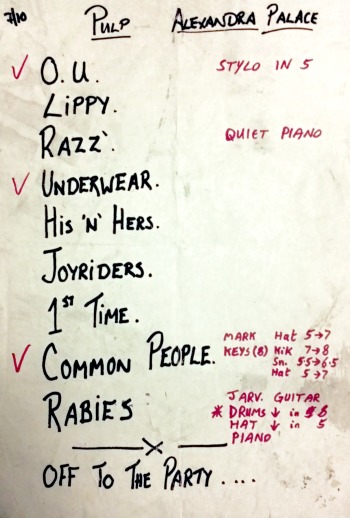 7/10 PULP ALEXANDRA PALACE
✓ O.U. STYLO IN 5
LIPPY.
RAZZ`. QUIET PIANO
✓ UNDERWEAR.
His 'N' HERS.
JOYRIDERS.
1ST TIME.
MARK Hat 5→7
✓ COMMON PEOPLE. KEYS(8) Kik 7→8
Sn. 5.5→6.5
Hat 5→7
RABIES JARV. GUITAR
* DRUMS ↓ in 8
HAT ↓ in 5
PIANO
X
OFF TO THE PARTY ....